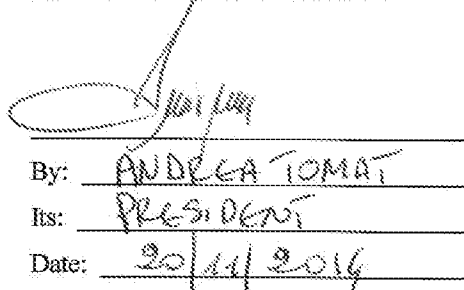 By: ANDREA TOMAT
Its: PRESIDENT
Date: 20/11/2014